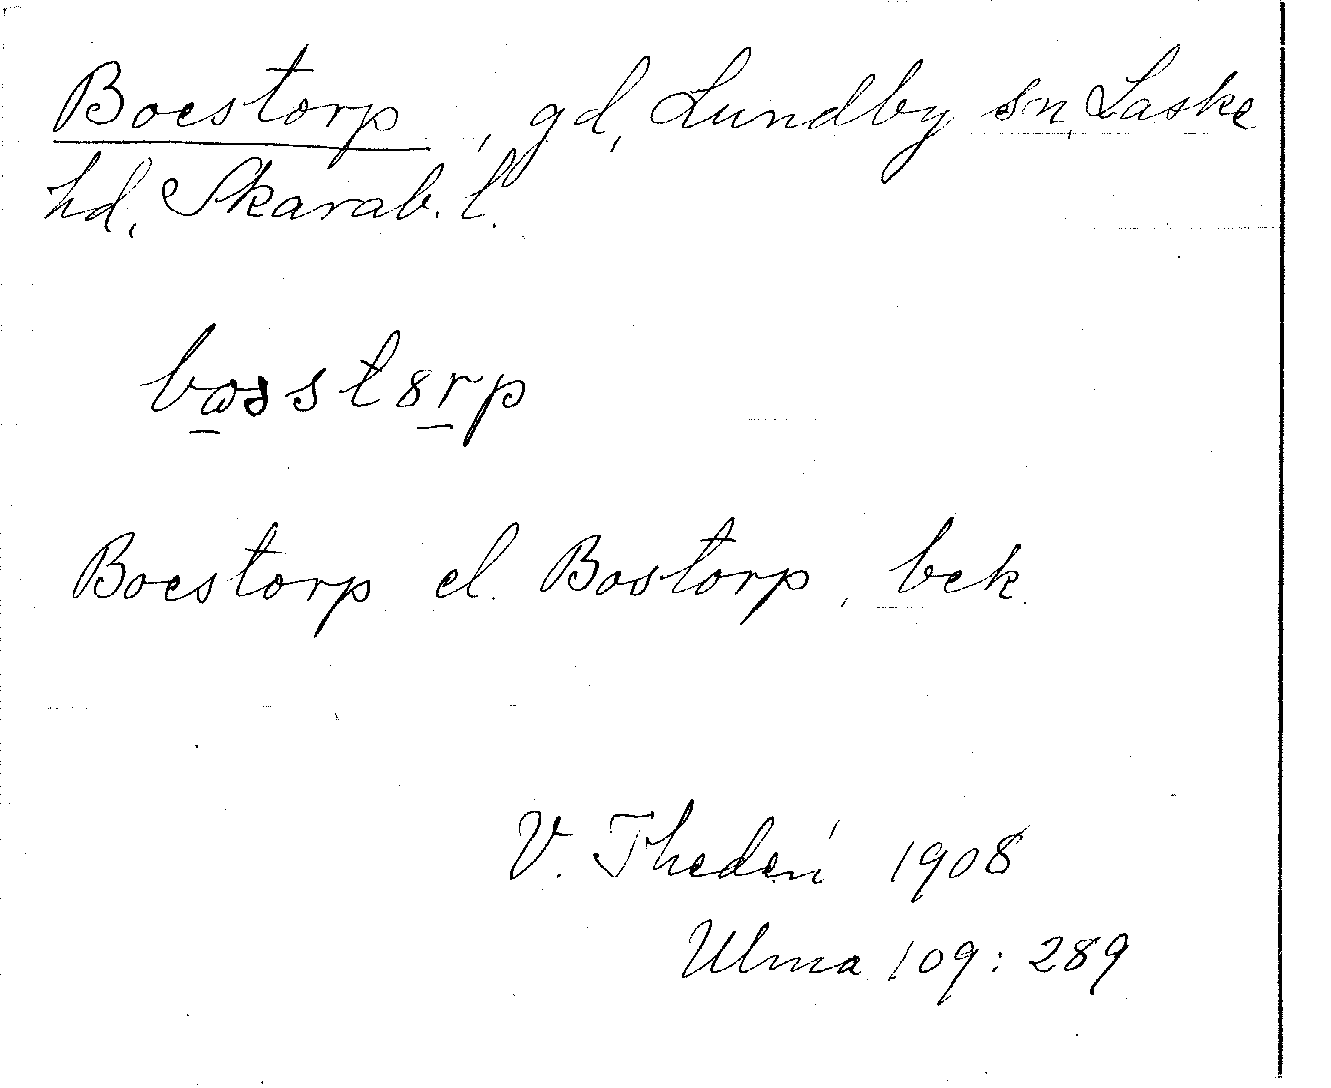 Boestorp, gd, Lundby sn, Laske
hd, Skarab. l.
Boestorp el. Bostorp, bek.
V. Thedén 1908
Ulma 109: 289